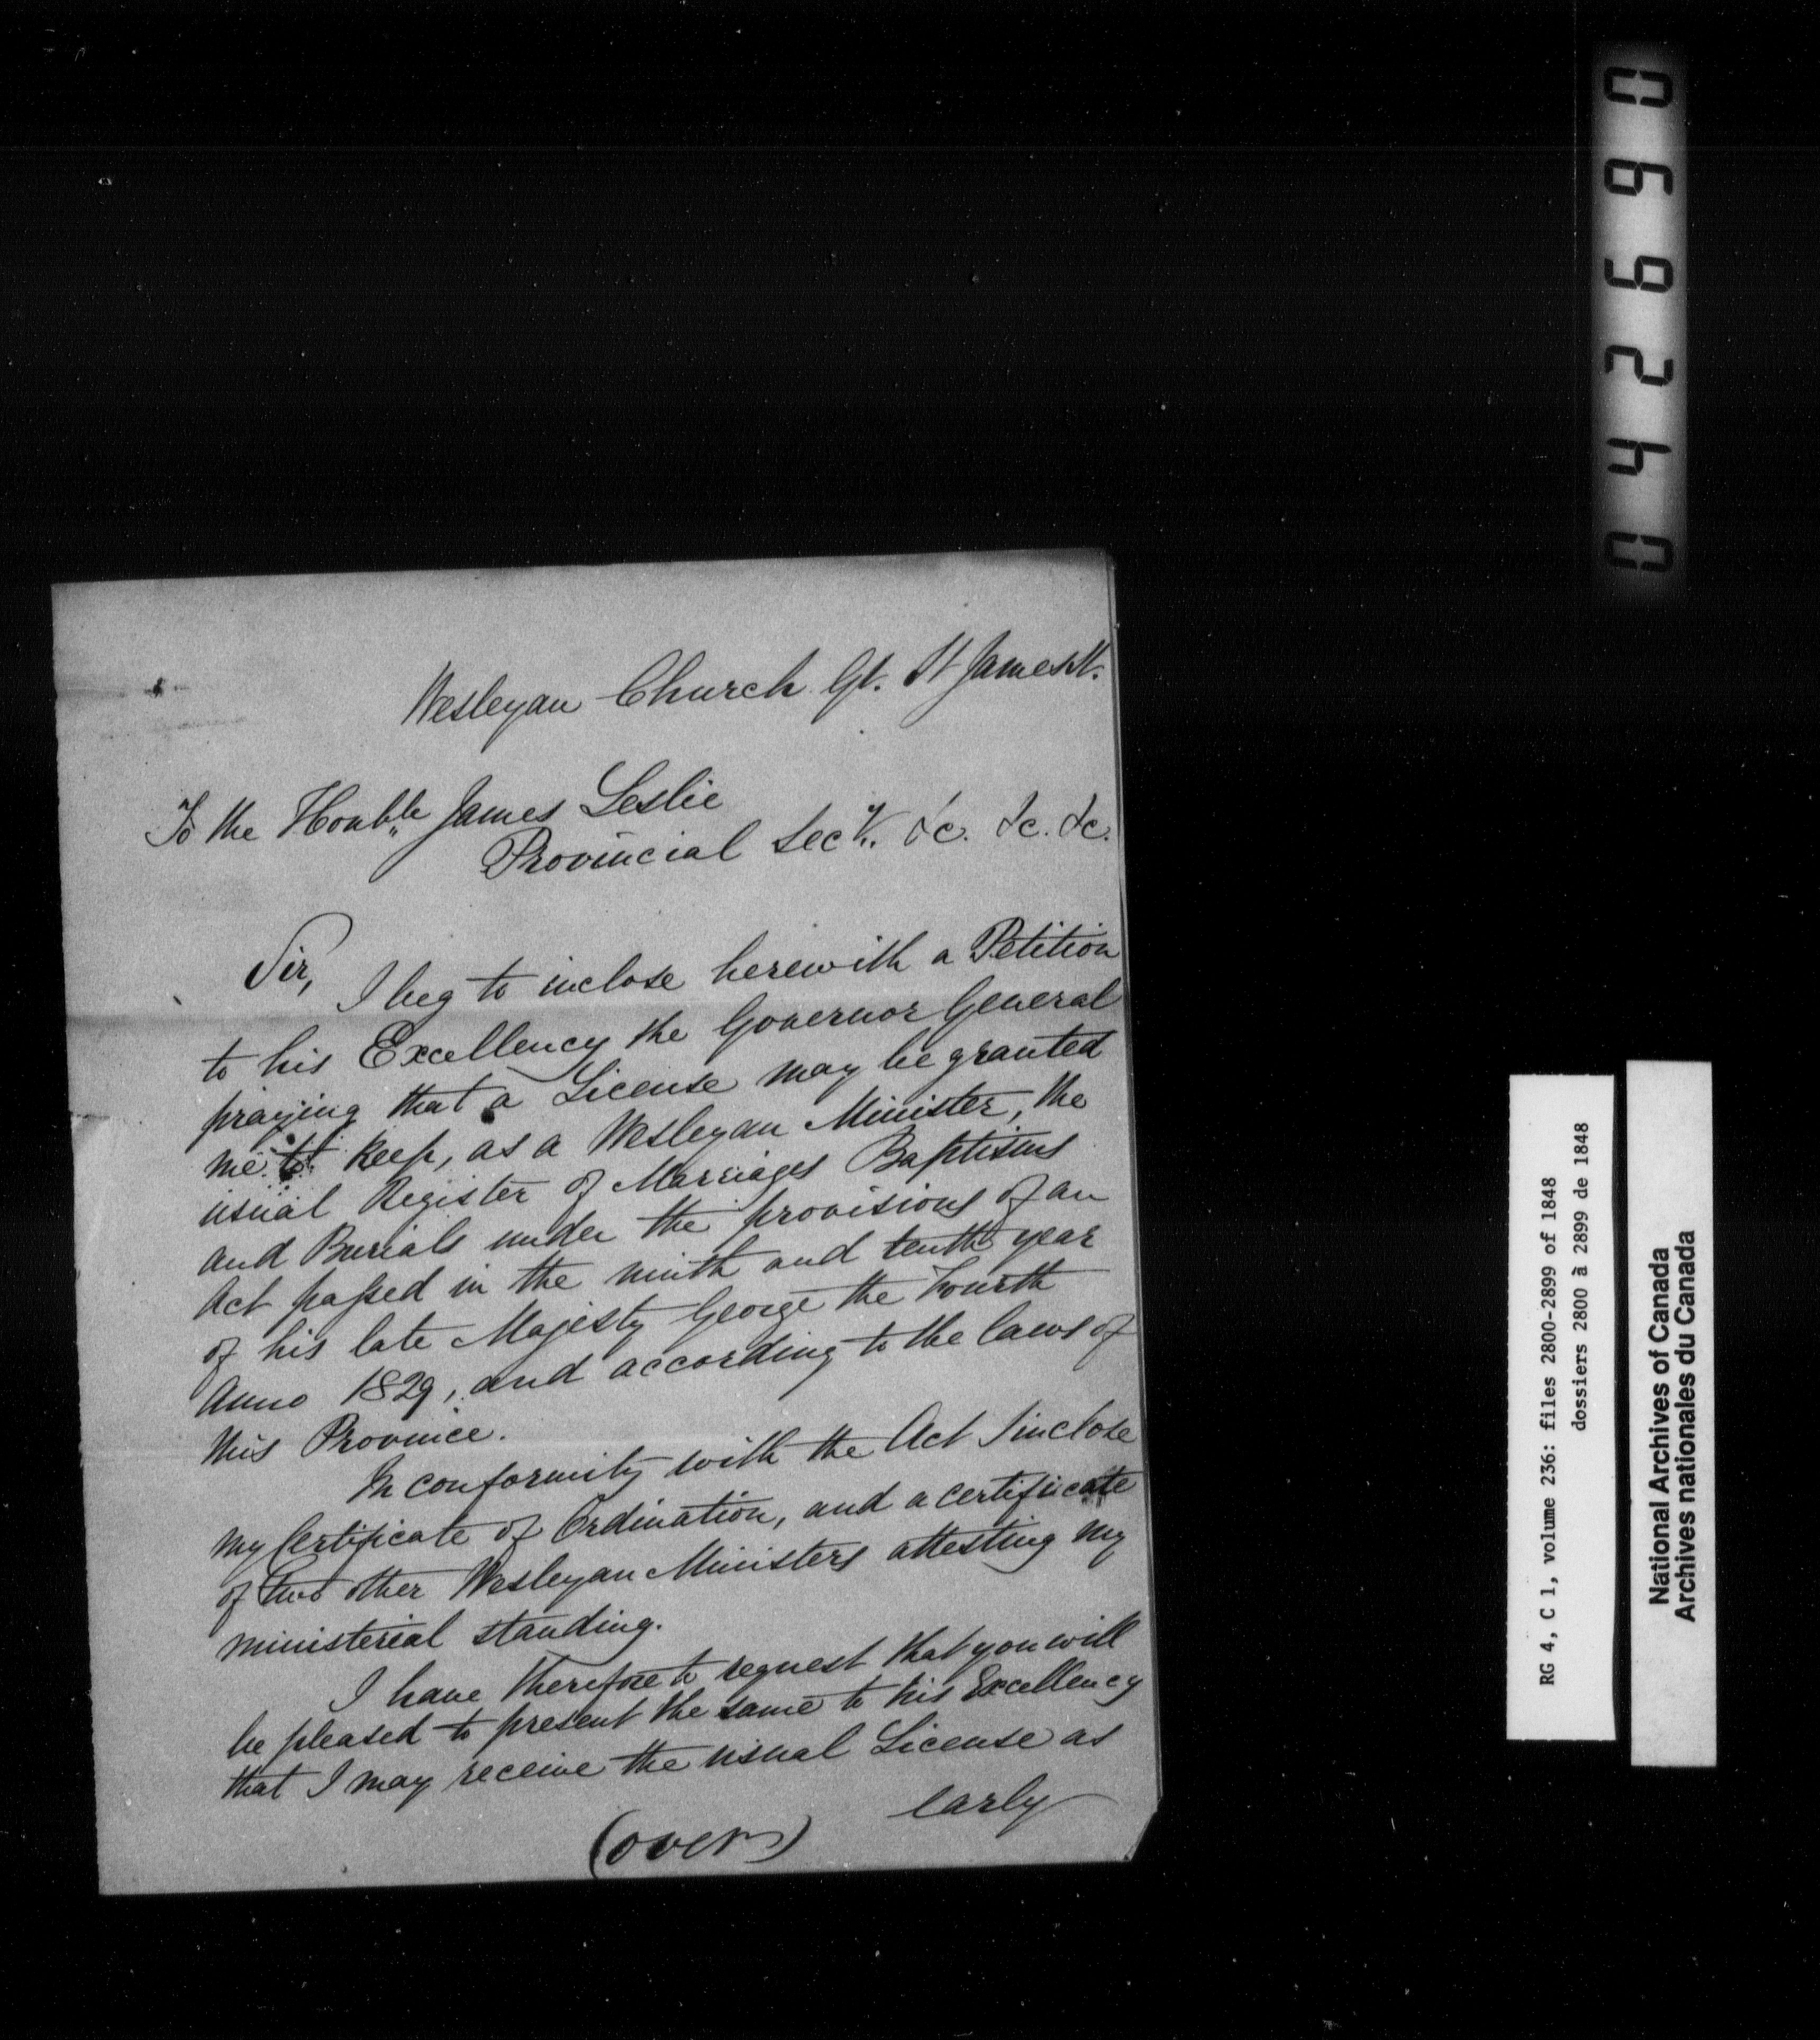 Wesleyan Church Gt. St James St.
To the Honble James Leslie
Provincial Secy. &c. &c. &c.
Sir,
I beg to inclose herewith a Petition
to his Excellency the Governor General
praying that a License may be granted
me to keep, as a Wesleyan Minister, the
usual Register of Marriages Baptisms
and Burials under the provisions of an
Act passed in the ninth and tenth year
of his late Majesty George the Fourth
Anno 1829, and according to the laws of
this Province.
In conformity with the Act I inclose
my Certificate of Ordination, and a certificate
of two other Wesleyan Ministers attesting my
ministerial standing.
I have therefore to request that you will
be pleased to present the same to his Excellency
that I may receive the usual License as
early
(over)
042690
RG 4, C 1, volume 236: files 2800-2899 of 1848
dossiers 2800 à 2899 de 1848
National Archives of Canada
Archives nationales du Canada